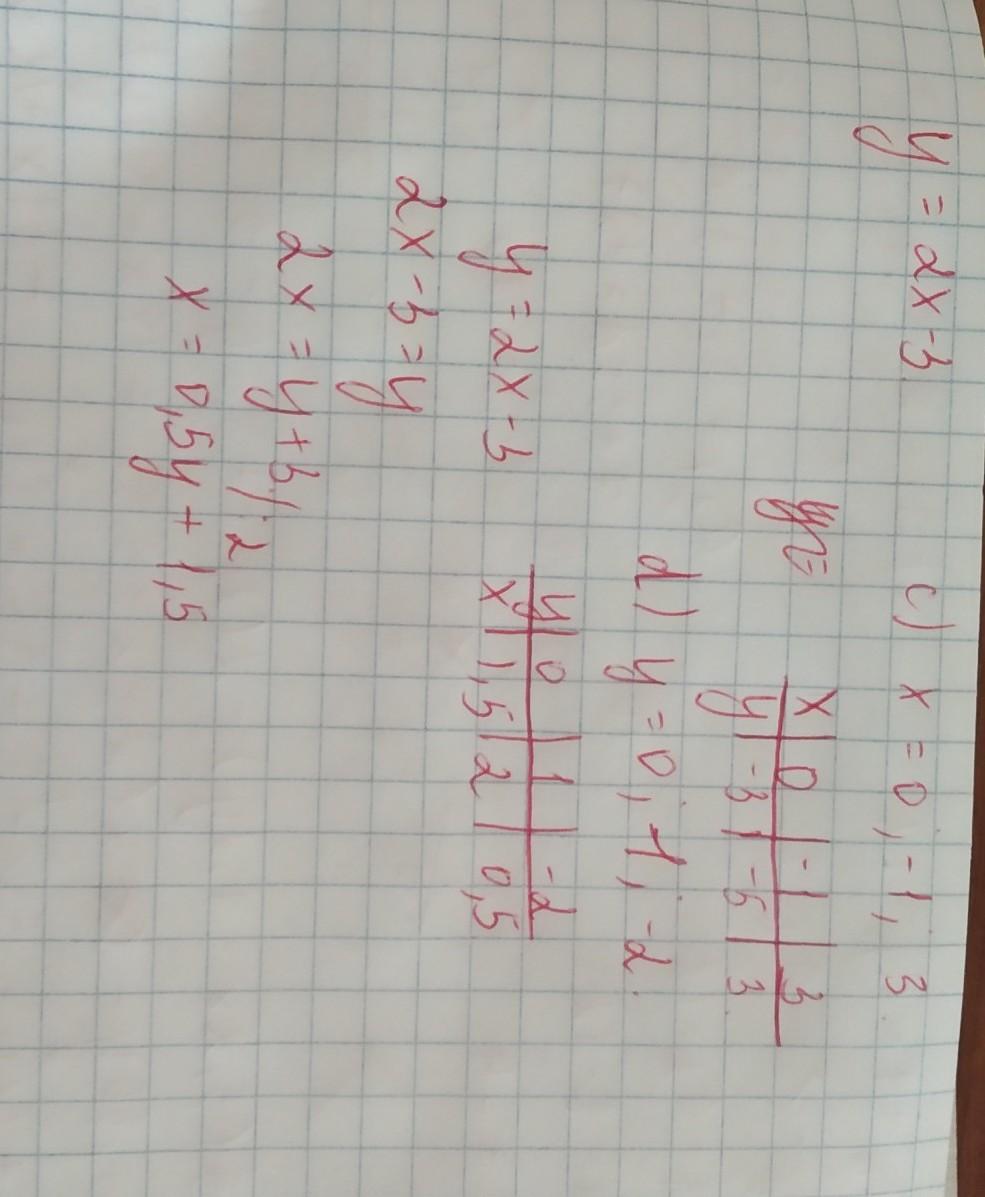 y = 2x - 3
c) x = 0, -1, 3
x | 0 | -1 | 3
y | -3 | -5 | 3
d) y = 0, 1, -2.
y | 0 | 1 | -2
x | 1,5 | 2 | 0,5
y = 2x - 3
2x - 3 = y
2x = y + 3 /:2
x = 0,5y + 1,5